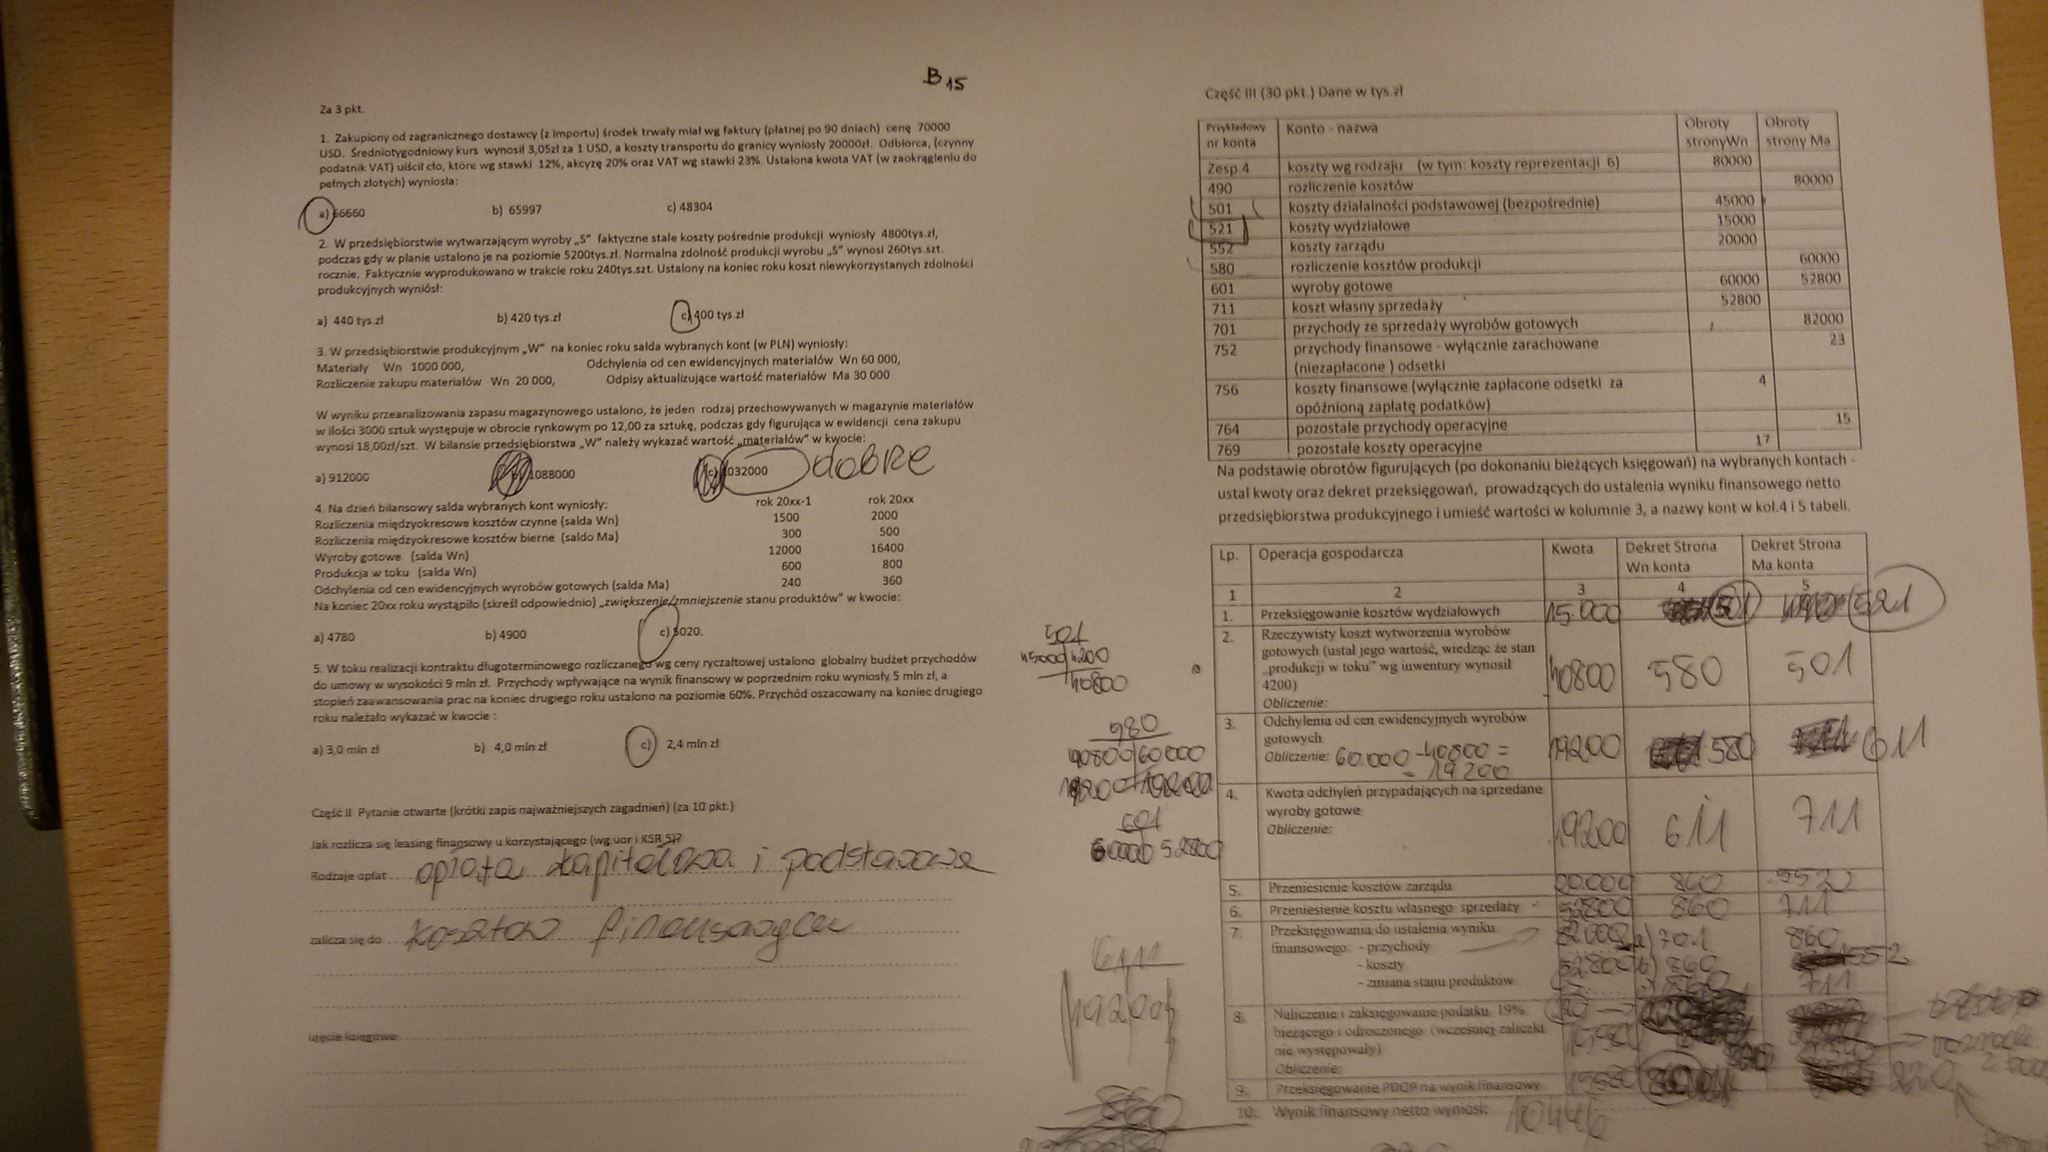 B 15
Za 3 pkt.
1. Zakupiony od zagranicznego dostawcy (z importu) środek trwały miał wg faktury (płatnej po 90 dniach) cenę 70000
USD. Średniotygodniowy kurs wynosił 3,05zł za 1 USD, a koszty transportu do granicy wyniosły 20000zł. Odbiorca, (czynny
podatnik VAT) uiścił cło, które wg stawki 12%, akcyzę 20% oraz VAT wg stawki 23%. Ustalona kwota VAT (w zaokrągleniu do
pełnych złotych) wyniosła:
a) 66660 b) 65997 c) 48304
2. W przedsiębiorstwie wytwarzającym wyroby „S" faktyczne stałe koszty pośrednie produkcji wyniosły 4800tys.zł,
podczas gdy w planie ustalono je na poziomie 5200tys.zł. Normalna zdolność produkcji wyrobu „S" wynosi 260tys.szt.
rocznie. Faktycznie wyprodukowano w trakcie roku 240tys.szt. Ustalony na koniec roku koszt niewykorzystanych zdolności
produkcyjnych wyniósł:
a) 440 tys.zł b) 420 tys.zł c) 400 tys.zł
3. W przedsiębiorstwie produkcyjnym „W" na koniec roku salda wybranych kont (w PLN) wyniosły:
Materiały Wn 1000 000, Odchylenia od cen ewidencyjnych materiałów Wn 60 000,
Rozliczenie zakupu materiałów Wn 20 000, Odpisy aktualizujące wartość materiałów Ma 30 000
W wyniku przeanalizowania zapasu magazynowego ustalono, że jeden rodzaj przechowywanych w magazynie materiałów
w ilości 3000 sztuk występuje w obrocie rynkowym po 12,00 za sztukę, podczas gdy figurująca w ewidencji cena zakupu
wynosi 18,00zł/szt. W bilansie przedsiębiorstwa „W" należy wykazać wartość „materiałów" w kwocie:
a) 912000 1088000 c) 1032000 dobre
4. Na dzień bilansowy salda wybranych kont wyniosły: rok 20xx-1 rok 20xx
Rozliczenia międzyokresowe kosztów czynne (salda Wn) 1500 2000
Rozliczenia międzyokresowe kosztów bierne (saldo Ma) 300 500
Wyroby gotowe (salda Wn) 12000 16400
Produkcja w toku (salda Wn) 600 800
Odchylenia od cen ewidencyjnych wyrobów gotowych (salda Ma) 240 360
Na koniec 20xx roku wystąpiło (skreśl odpowiednio) „zwiększenie/zmniejszenie stanu produktów" w kwocie:
a) 4780 b) 4900 c) 5020.
5. W toku realizacji kontraktu długoterminowego rozliczanego wg ceny ryczałtowej ustalono globalny budżet przychodów
do umowy w wysokości 9 mln zł. Przychody wpływające na wynik finansowy w poprzednim roku wyniosły 5 mln zł, a
stopień zaawansowania prac na koniec drugiego roku ustalono na poziomie 60%. Przychód oszacowany na koniec drugiego
roku należało wykazać w kwocie :
a) 3,0 mln zł b) 4,0 mln zł c) 2,4 mln zł
Część II Pytanie otwarte (krótki zapis najważniejszych zagadnień) (za 10 pkt.)
Jak rozlicza się leasing finansowy u korzystającego (wg uor i KSR 5)?
Rodzaje opłat opłata kapitałowa i podstawowa
zalicza się do kosztów finansowych
ujęcie księgowe
Część III (30 pkt.) Dane w tys.zł
Przykładowy nr konta Konto - nazwa Obroty stronyWn Obroty strony Ma
Zesp.4 koszty wg rodzaju (w tym: koszty reprezentacji 6) 80000
490 rozliczenie kosztów 80000
501 koszty działalności podstawowej (bezpośrednie) 45000
521 koszty wydziałowe 15000
552 koszty zarządu 20000
580 rozliczenie kosztów produkcji 60000
601 wyroby gotowe 60000 52800
711 koszt własny sprzedaży 52800
701 przychody ze sprzedaży wyrobów gotowych 82000
752 przychody finansowe - wyłącznie zarachowane 23
(niezapłacone ) odsetki
756 koszty finansowe (wyłącznie zapłacone odsetki za 4
opóźnioną zapłatę podatków)
764 pozostałe przychody operacyjne 15
769 pozostałe koszty operacyjne 17
Na podstawie obrotów figurujących (po dokonaniu bieżących księgowań) na wybranych kontach -
ustal kwoty oraz dekret przeksięgowań, prowadzących do ustalenia wyniku finansowego netto
przedsiębiorstwa produkcyjnego i umieść wartości w kolumnie 3, a nazwy kont w kol.4 i 5 tabeli.
Lp. Operacja gospodarcza Kwota Dekret Strona Wn konta Dekret Strona Ma konta
1 2 3 4 5
1. Przeksięgowanie kosztów wydziałowych 15.000 501 521
2. Rzeczywisty koszt wytworzenia wyrobów
gotowych (ustal jego wartość, wiedząc że stan
„produkcji w toku" wg inwentury wynosił
4200) 40800 580 501
Obliczenie:
3. Odchylenia od cen ewidencyjnych wyrobów
gotowych 19200 580 611
Obliczenie: 60.000 - 40800 =
= 19200
4. Kwota odchyleń przypadających na sprzedane
wyroby gotowe 19200 611 711
Obliczenie:
5. Przeniesienie kosztów zarządu 20.000 860 552
6. Przeniesienie kosztu własnego sprzedaży 52800 860 711
7. Przeksięgowania do ustalenia wyniku
finansowego: - przychody 82000 a) 701 860
- koszty 52800 b) 860 552
- zmiana stanu produktów 711
8. Naliczenie i zaksięgowanie podatku 19%
bieżącego i odroczonego (wcześniej zaliczki
nie występowały)
Obliczenie:
9. Przeksięgowanie PDOP na wynik finansowy 220
10. Wynik finansowy netto wyniósł: 10446
501
45000 4200
40800
580
40800 60000
19200
601
60000 52800
611
19200
860